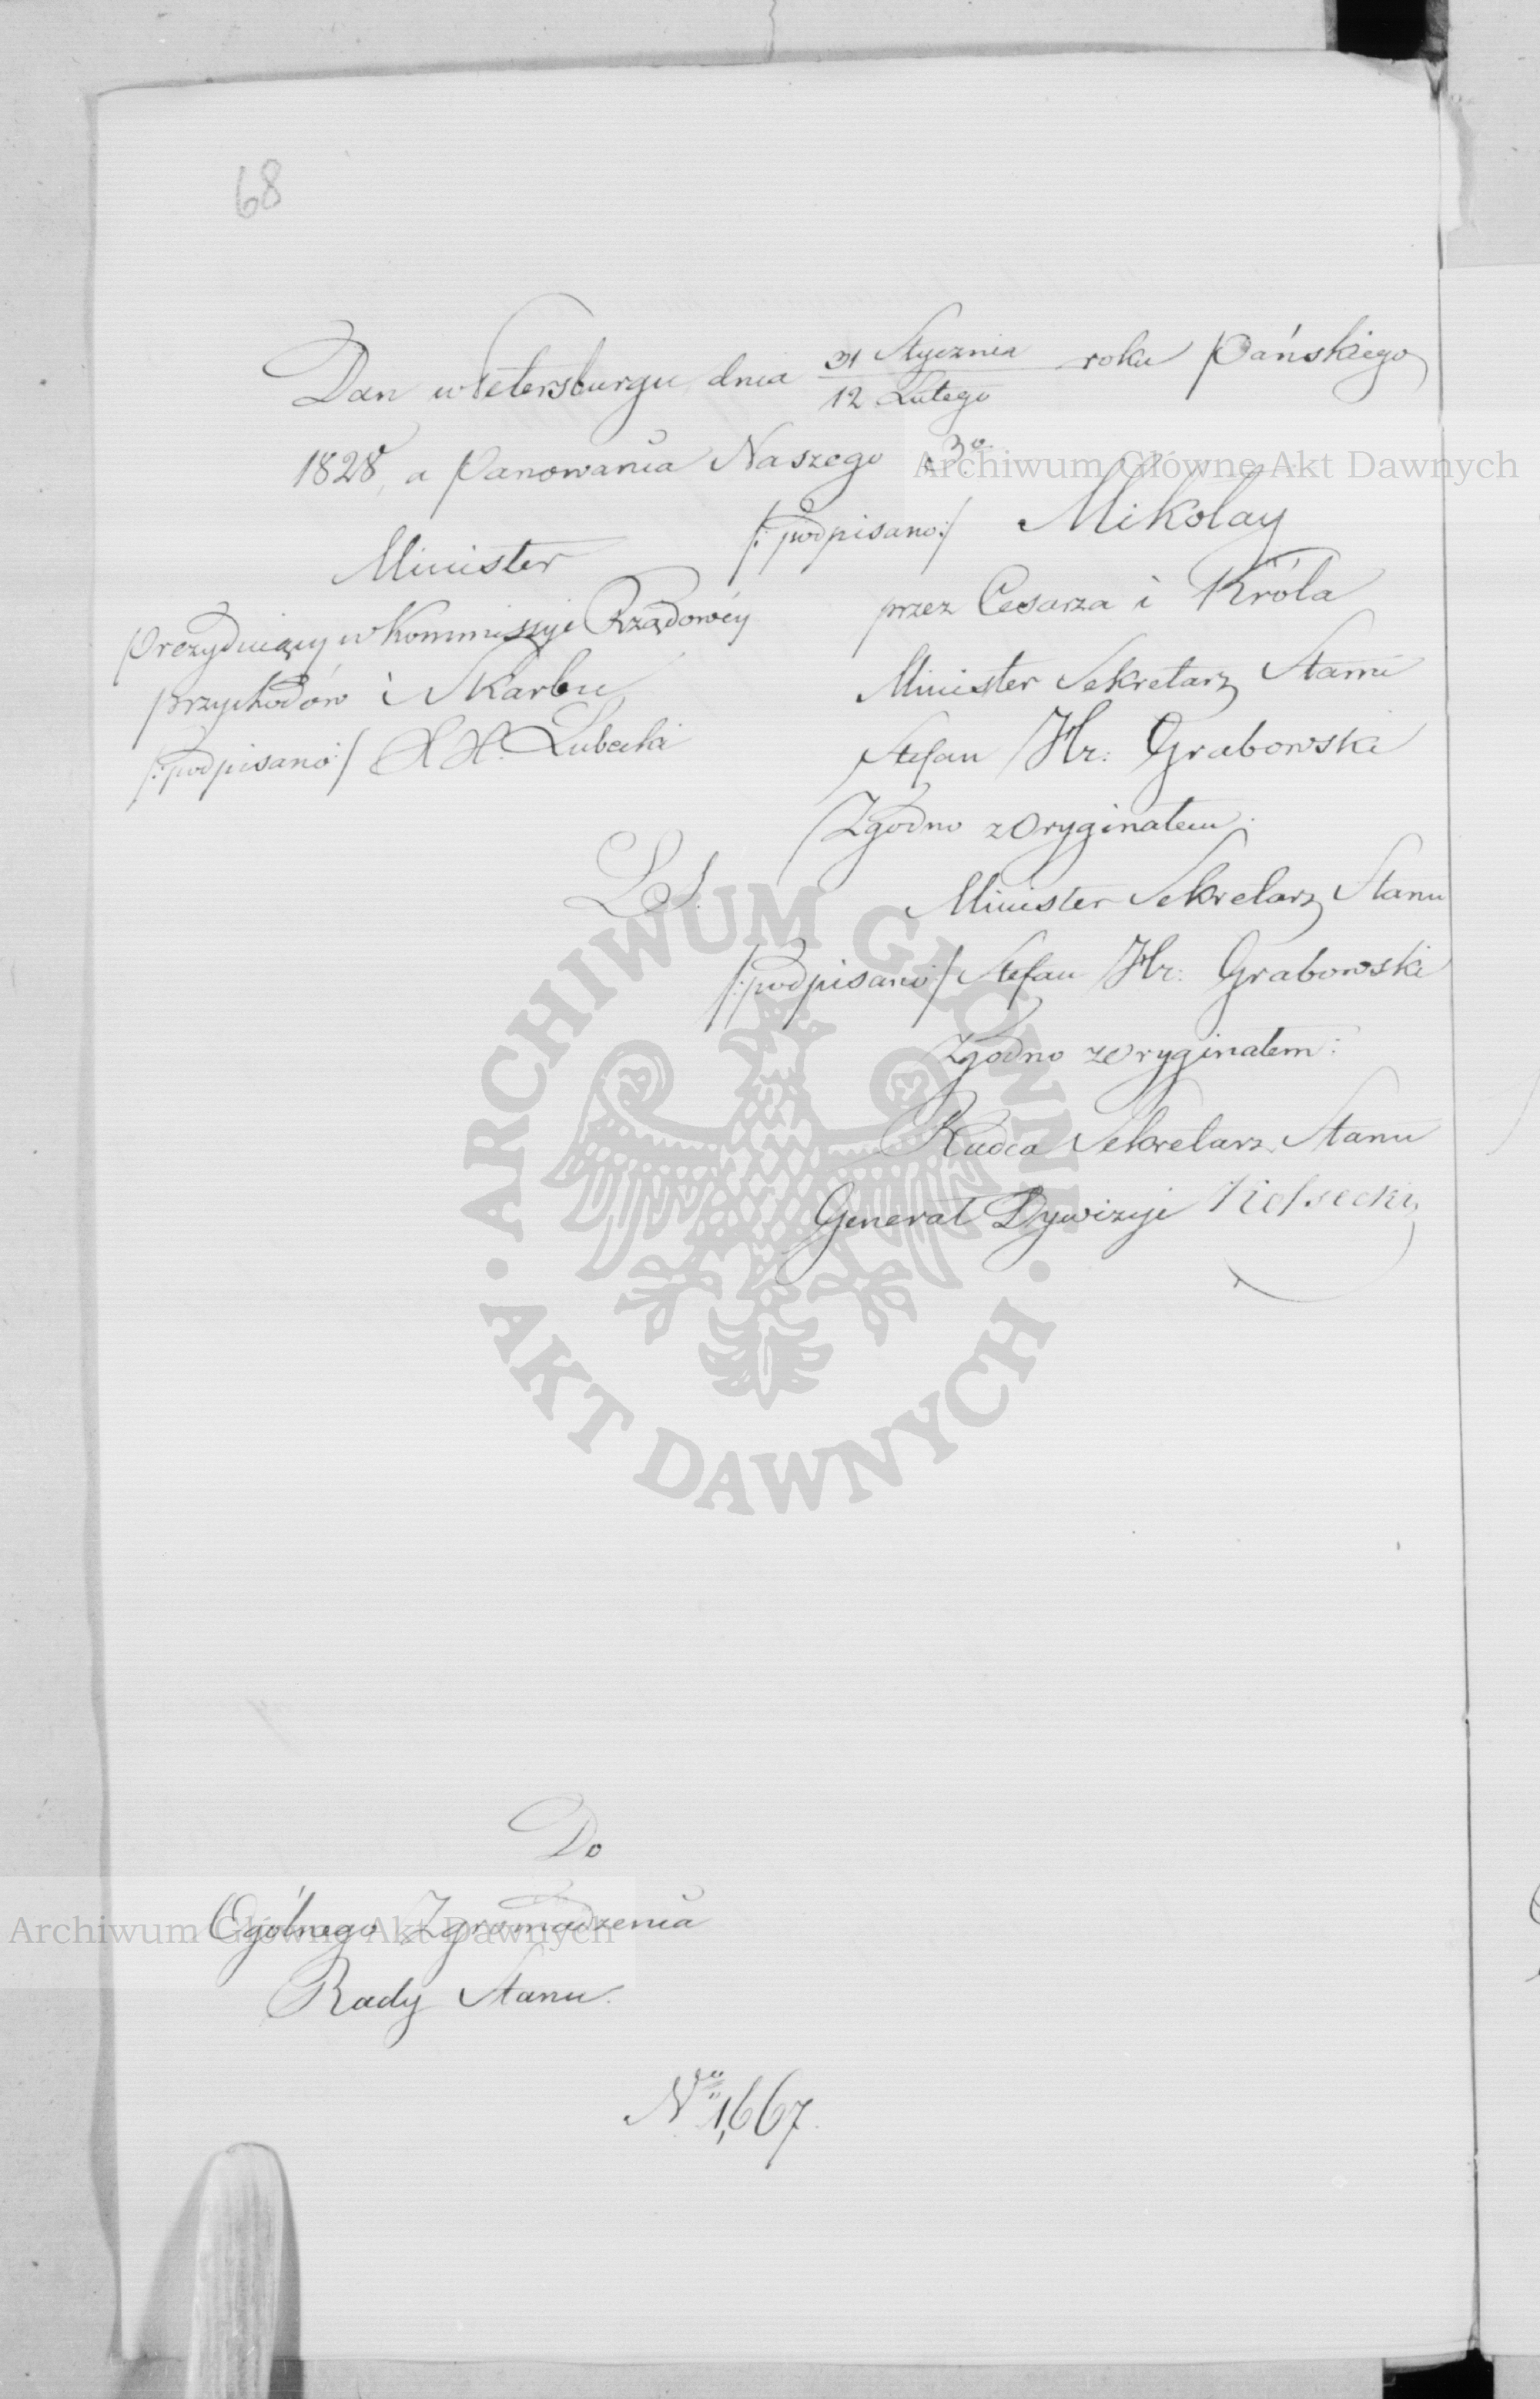 68
Dan w Petersburgu dnia 31 Stycznia / 12 Lutego roku Pańskiego
1828, a Panowania Naszego 3º
/:podpisano:/ Mikołay
Minister
Prezyduiący w Kommissyi Rządowéy
Przychodów i Skarbu
/:podpisano:/ X. Lubecki
przez Cesarza i Króla
Minister Sekretarz Stanu
Stefan Hr: Grabowski
Zgodno z Oryginałem:
LS.
Minister Sekretarz Stanu
/:podpisano:/ Stefan Hr: Grabowski
Zgodno z Oryginałem:
Radca Sekretarz Stanu
Generał Dywizyi
Do
Ogólnego Zgromadzenia
Rady Stanu.
Nro 1,667.
Archiwum Główne Akt Dawnych
ARCHIWUM GŁÓWNE
AKT DAWNYCH
Archiwum Główne Akt Dawnych